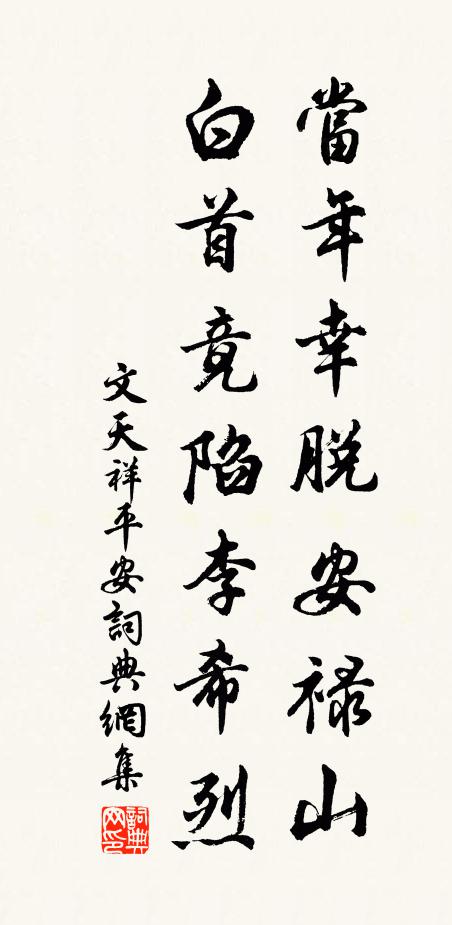 當年幸脫安祿山
白首竟陷李希烈
文天祥平安詞典網集
詞典網印